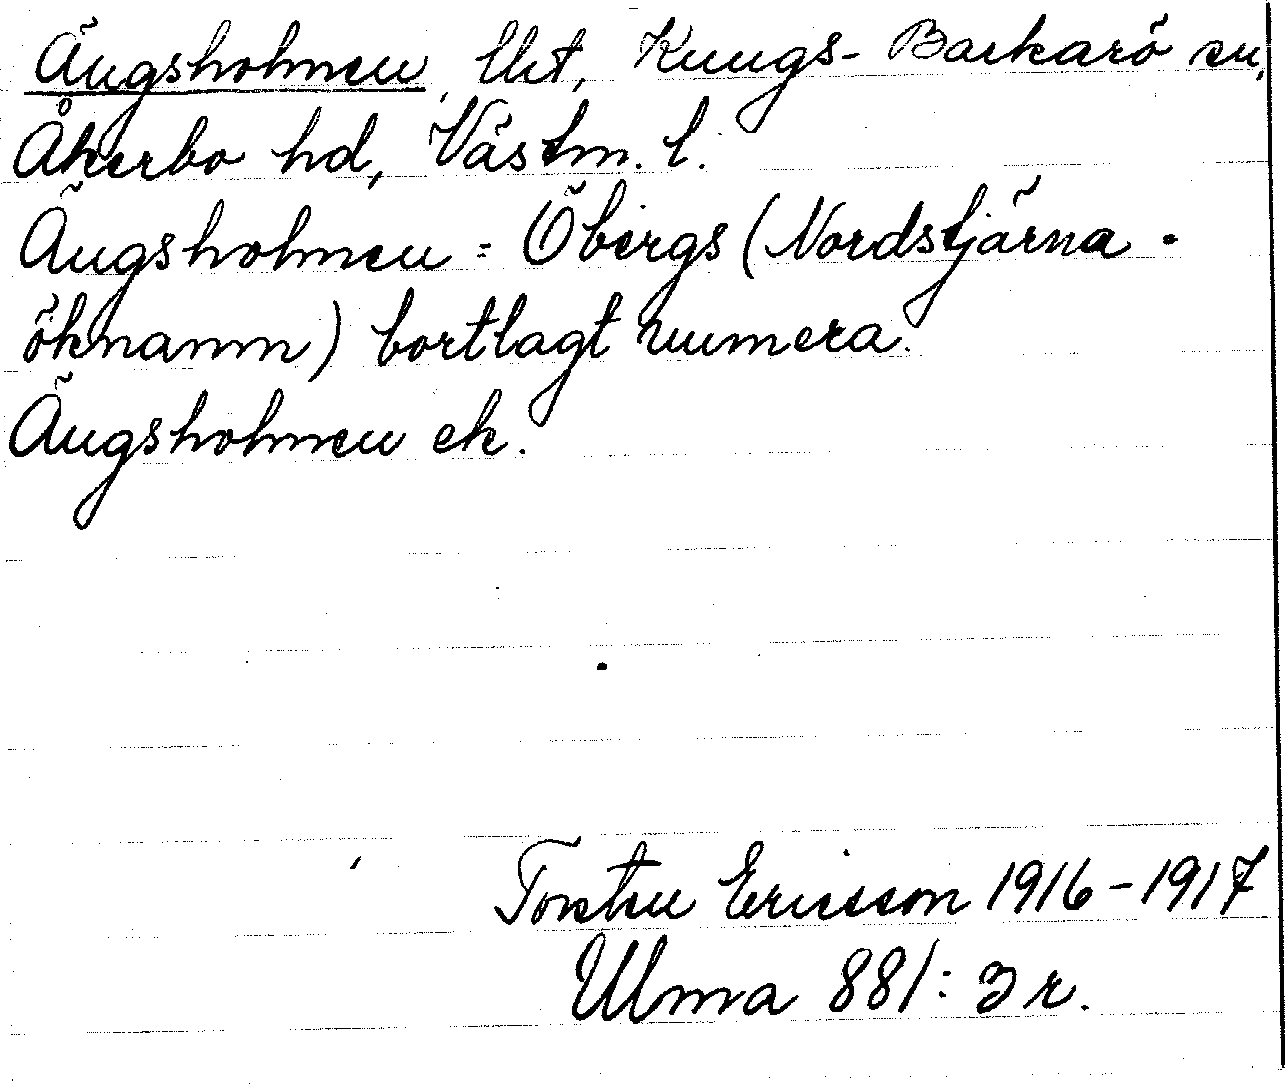 Ängsholmen, lht, Kungs-Barkarö sn,
Åkerbo hd, Västm. l.
Ängsholmen = Öbergs (Nordstjärna -
öknamn) bortlagt numera.
Ängsholmen ek.
Torsten Ericsson 1916-1917
Ulma 881: 3 r.